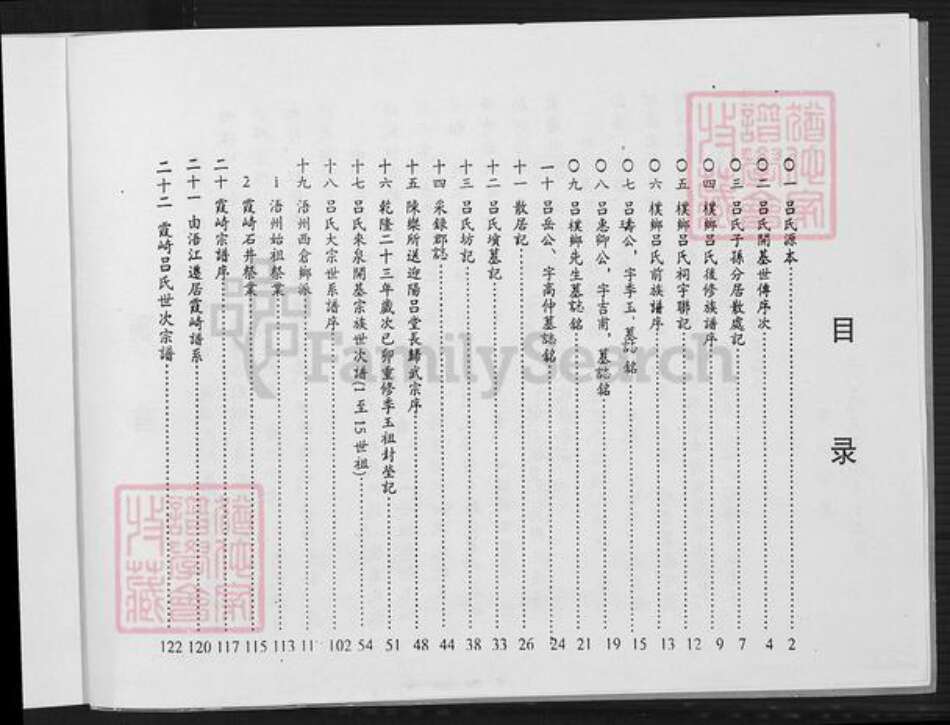 目录
〇一 吕氏源本 2
〇二 吕氏開基世傳序次 4
〇三 吕氏子孫分居散處記 7
〇四 樸鄉吕氏後修族譜序 9
〇五 樸鄉吕氏祠宇聯記 12
〇六 樸鄉吕氏前族譜序 13
〇七 吕璹公，字季玉，墓誌銘 15
〇八 吕忠卿公，字吉甫，墓誌銘 19
〇九 吕樸鄉先生墓誌銘 21
一十 吕岳公、字高仲墓誌銘 24
十一 散居記 26
十二 吕氏墳墓記 33
十三 吕氏坊記 38
十四 采錄郡誌 44
十五 陳燦所送迎陽吕堂長歸武宗序 48
十六 乾隆二十三年歲次己卯重修季玉祖封塋記 51
十七 吕氏來泉開基宗族世次譜(1至15世祖) 54
十八 吕氏大宗世系譜序 102
十九 浯州西倉鄉派 11
1 浯州始祖祭業 113
2 霞崎石井祭業 115
二十 霞崎宗譜序 117
二十一 由浯江遷居霞崎譜系 120
二十二 霞崎吕氏世次宗譜 122
FamilySearch
譜學會
收藏
譜學會
收藏